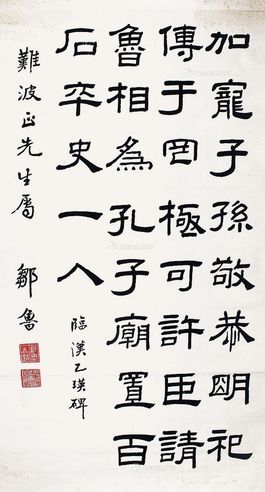 加寵子孫敬恭明祀
傳于罔極可許臣請
魯相為孔子廟置百
石卒史一人
臨漢乙瑛碑
難波正先生属
鄒魯